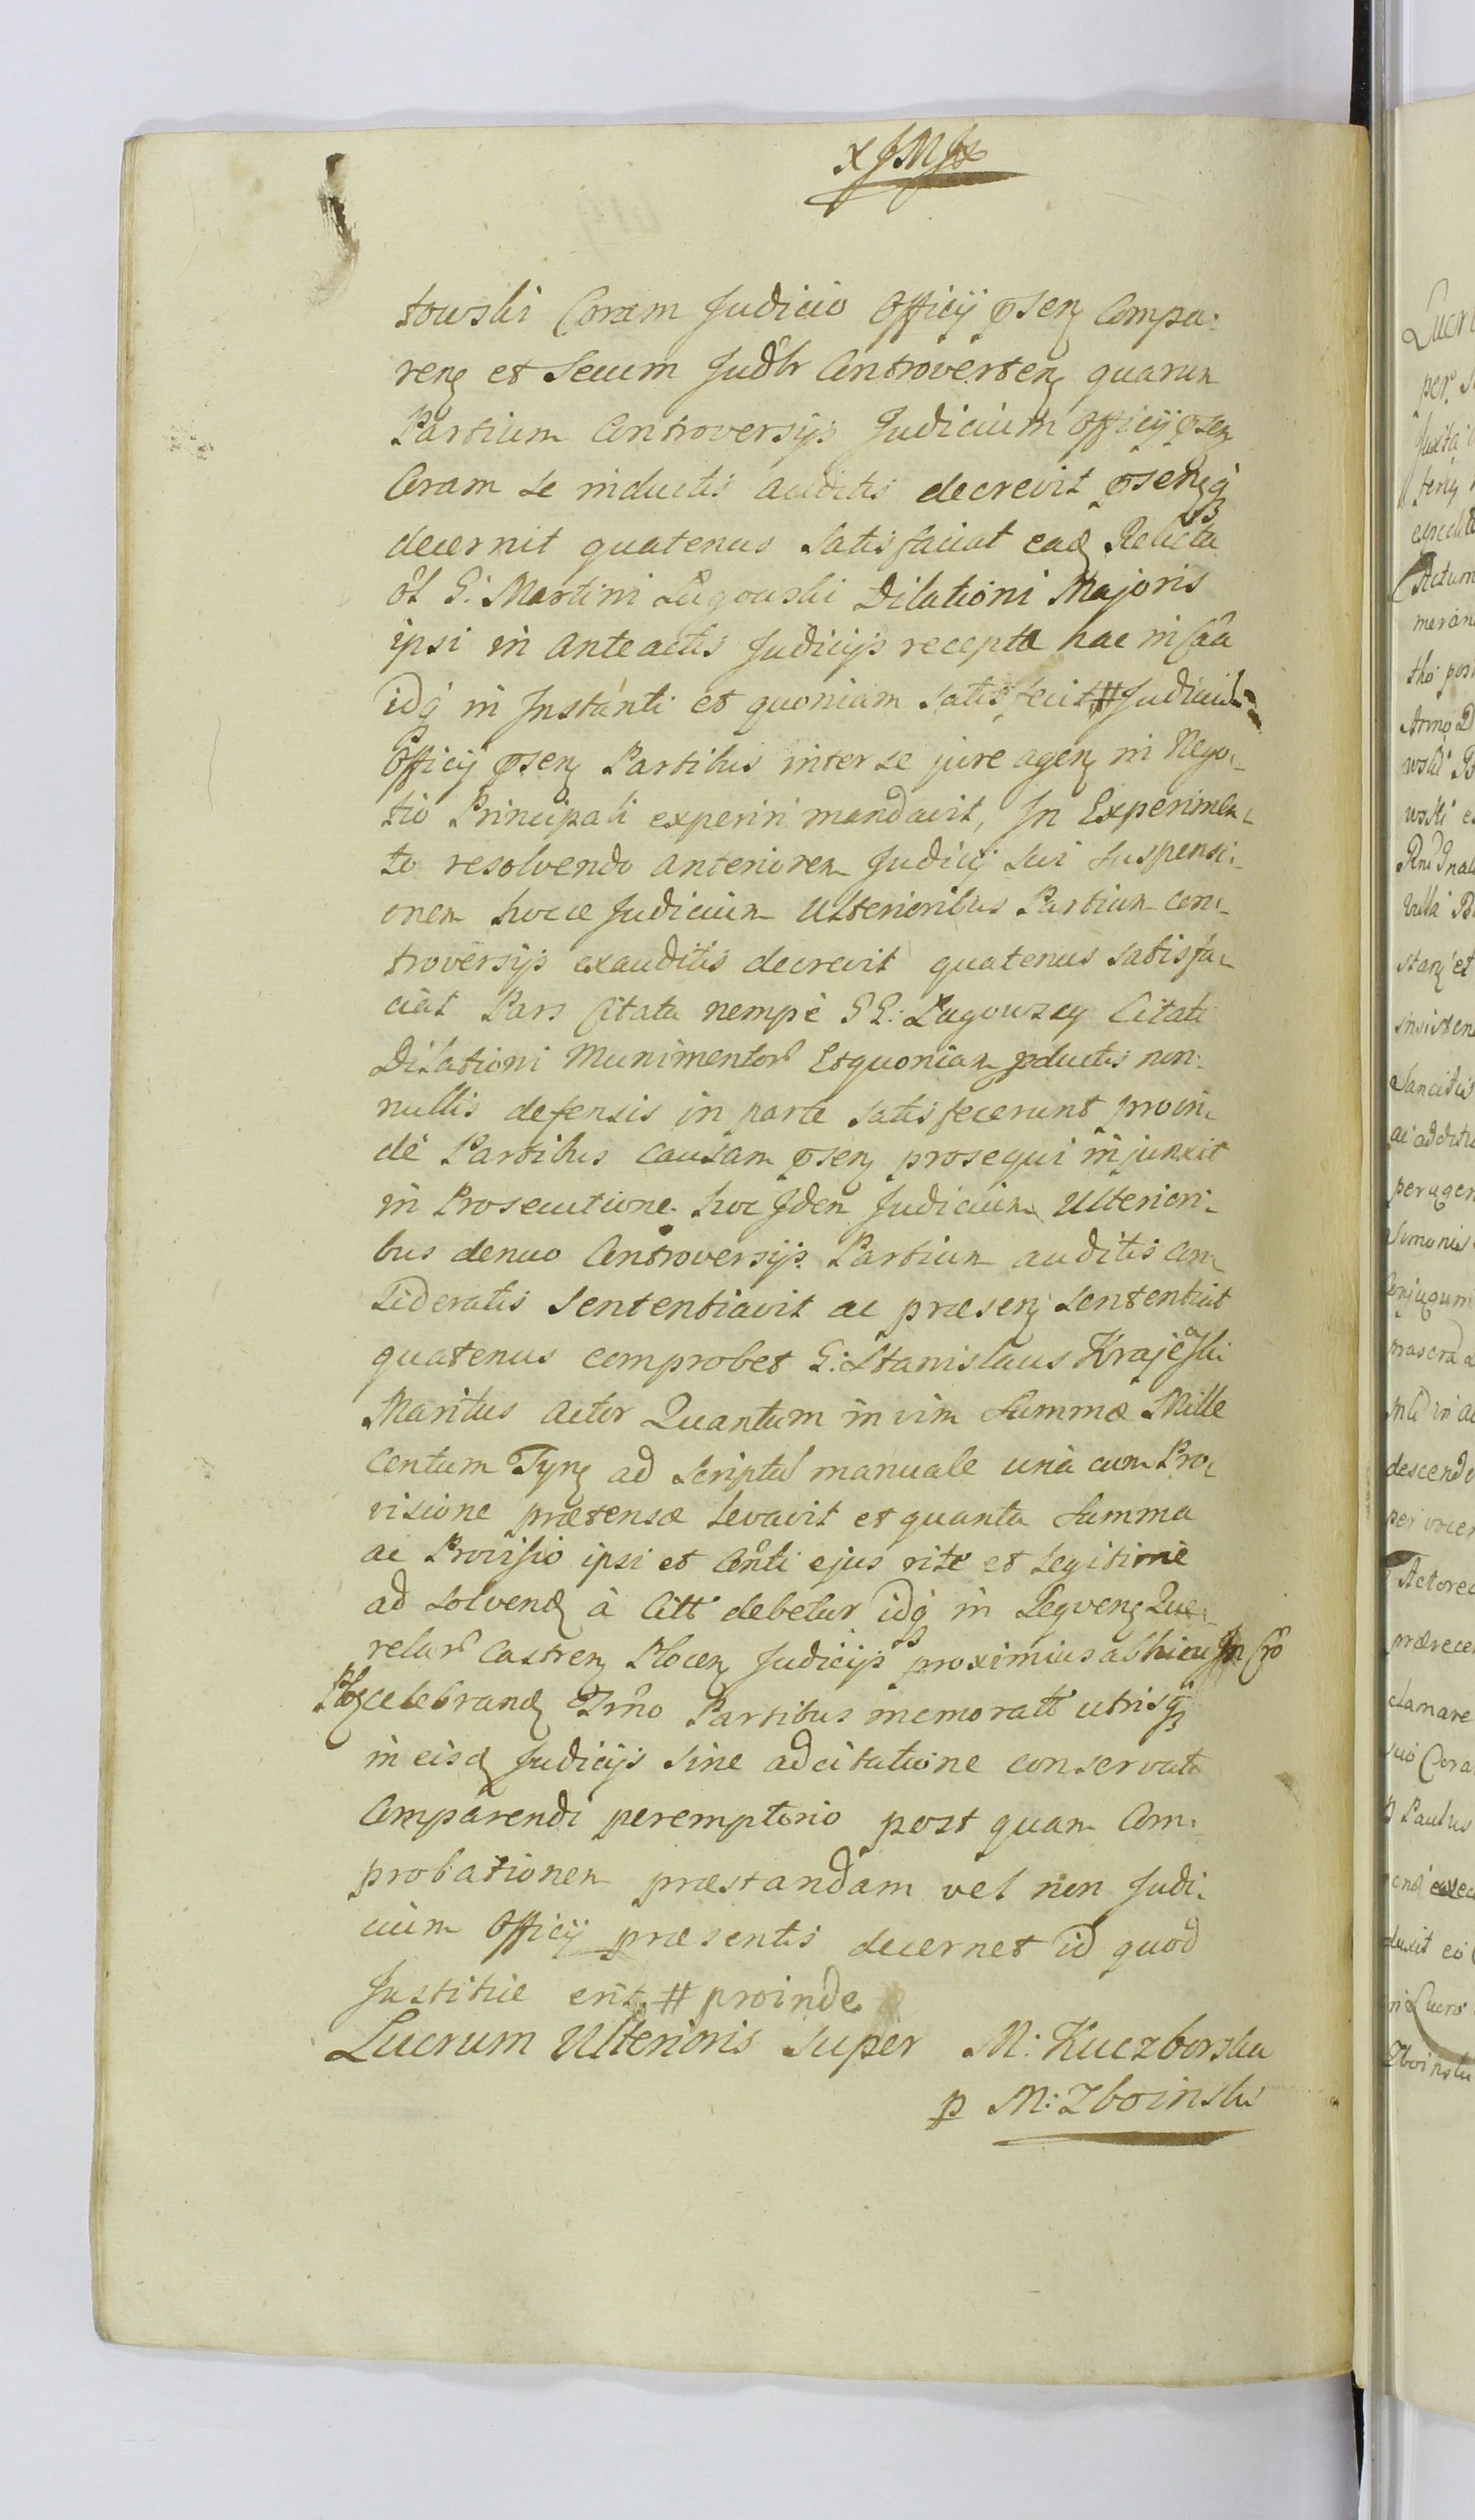 x J M J x
towski Coram Judicio Officij psen Compa-
ren et Secum Judlr Controverten quarum
Partium Controversijs Judicium Officij psen
Coram se inductis auditis decrevit psenq
decernit quatenus Satisfaciat ead Relicta
ol G: Martini Lugowski Dilationi Majoris
ipsi in anteactis Judicijs receptæ hac in Caa
idq in Instanti et quoniam satis fecit # Judicium
Officij psen Partibus inter se jure agen in Nego-
tio Principali experiri mandavit, In Experimen-
to resolvendo anteriorem Judicij sui suspensi-
onem hocce Judicium Ulterioribus Partium con-
troversijs exauditis decrevit quatenus satisfa-
ciat Pars Citata nempè GG: Lugowscy Citati
Dilationi Munimentor Et quoniam pductis non-
nullis defensis in parte satis fecerunt proin-
dè Partibus causam psen prosequi injunxit
in Prosecutione hoc Idem Judicium Ulteriori-
bus denuo Controversijs Partium auditis con-
sideratis Sententiavit ac præsen sententiat
quatenus comprobet G: Stanislaus Krajeski
Maritus actor Quantum in vim Summæ Mille
Centum Tyn ad Scriptu manuale unà cum Pro-
visione prætensæ levavit et quanta Summa
ac Provisio ipsi et Conti ejus ritè et Legitimè
ad solvend à Citt debetur idq in Seqven Que-
relar Castren Plocen Judicijs proximius abhinc In Cro
Plo celebrand Trno Partibus memoratt utrisq
in eisd Judicijs sine adcitatione conservato
Comparendi peremptorio post quam Com-
probationem præstandam vel non Judi-
cium Officij præsentis decernet id quod
Justitiæ erit. # proinde
Lucrum Ulterioris super M: Kuczborska
p M: Zboinski